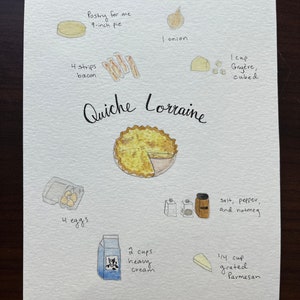 Pastry for one
9-inch pie
1 onion
4 strips
bacon
1 cup
Gruyère,
cubed
Quiche Lorraine
4 eggs
salt, pepper,
and nutmeg
2 cups
heavy
cream
1/4 cup
grated
Parmesan